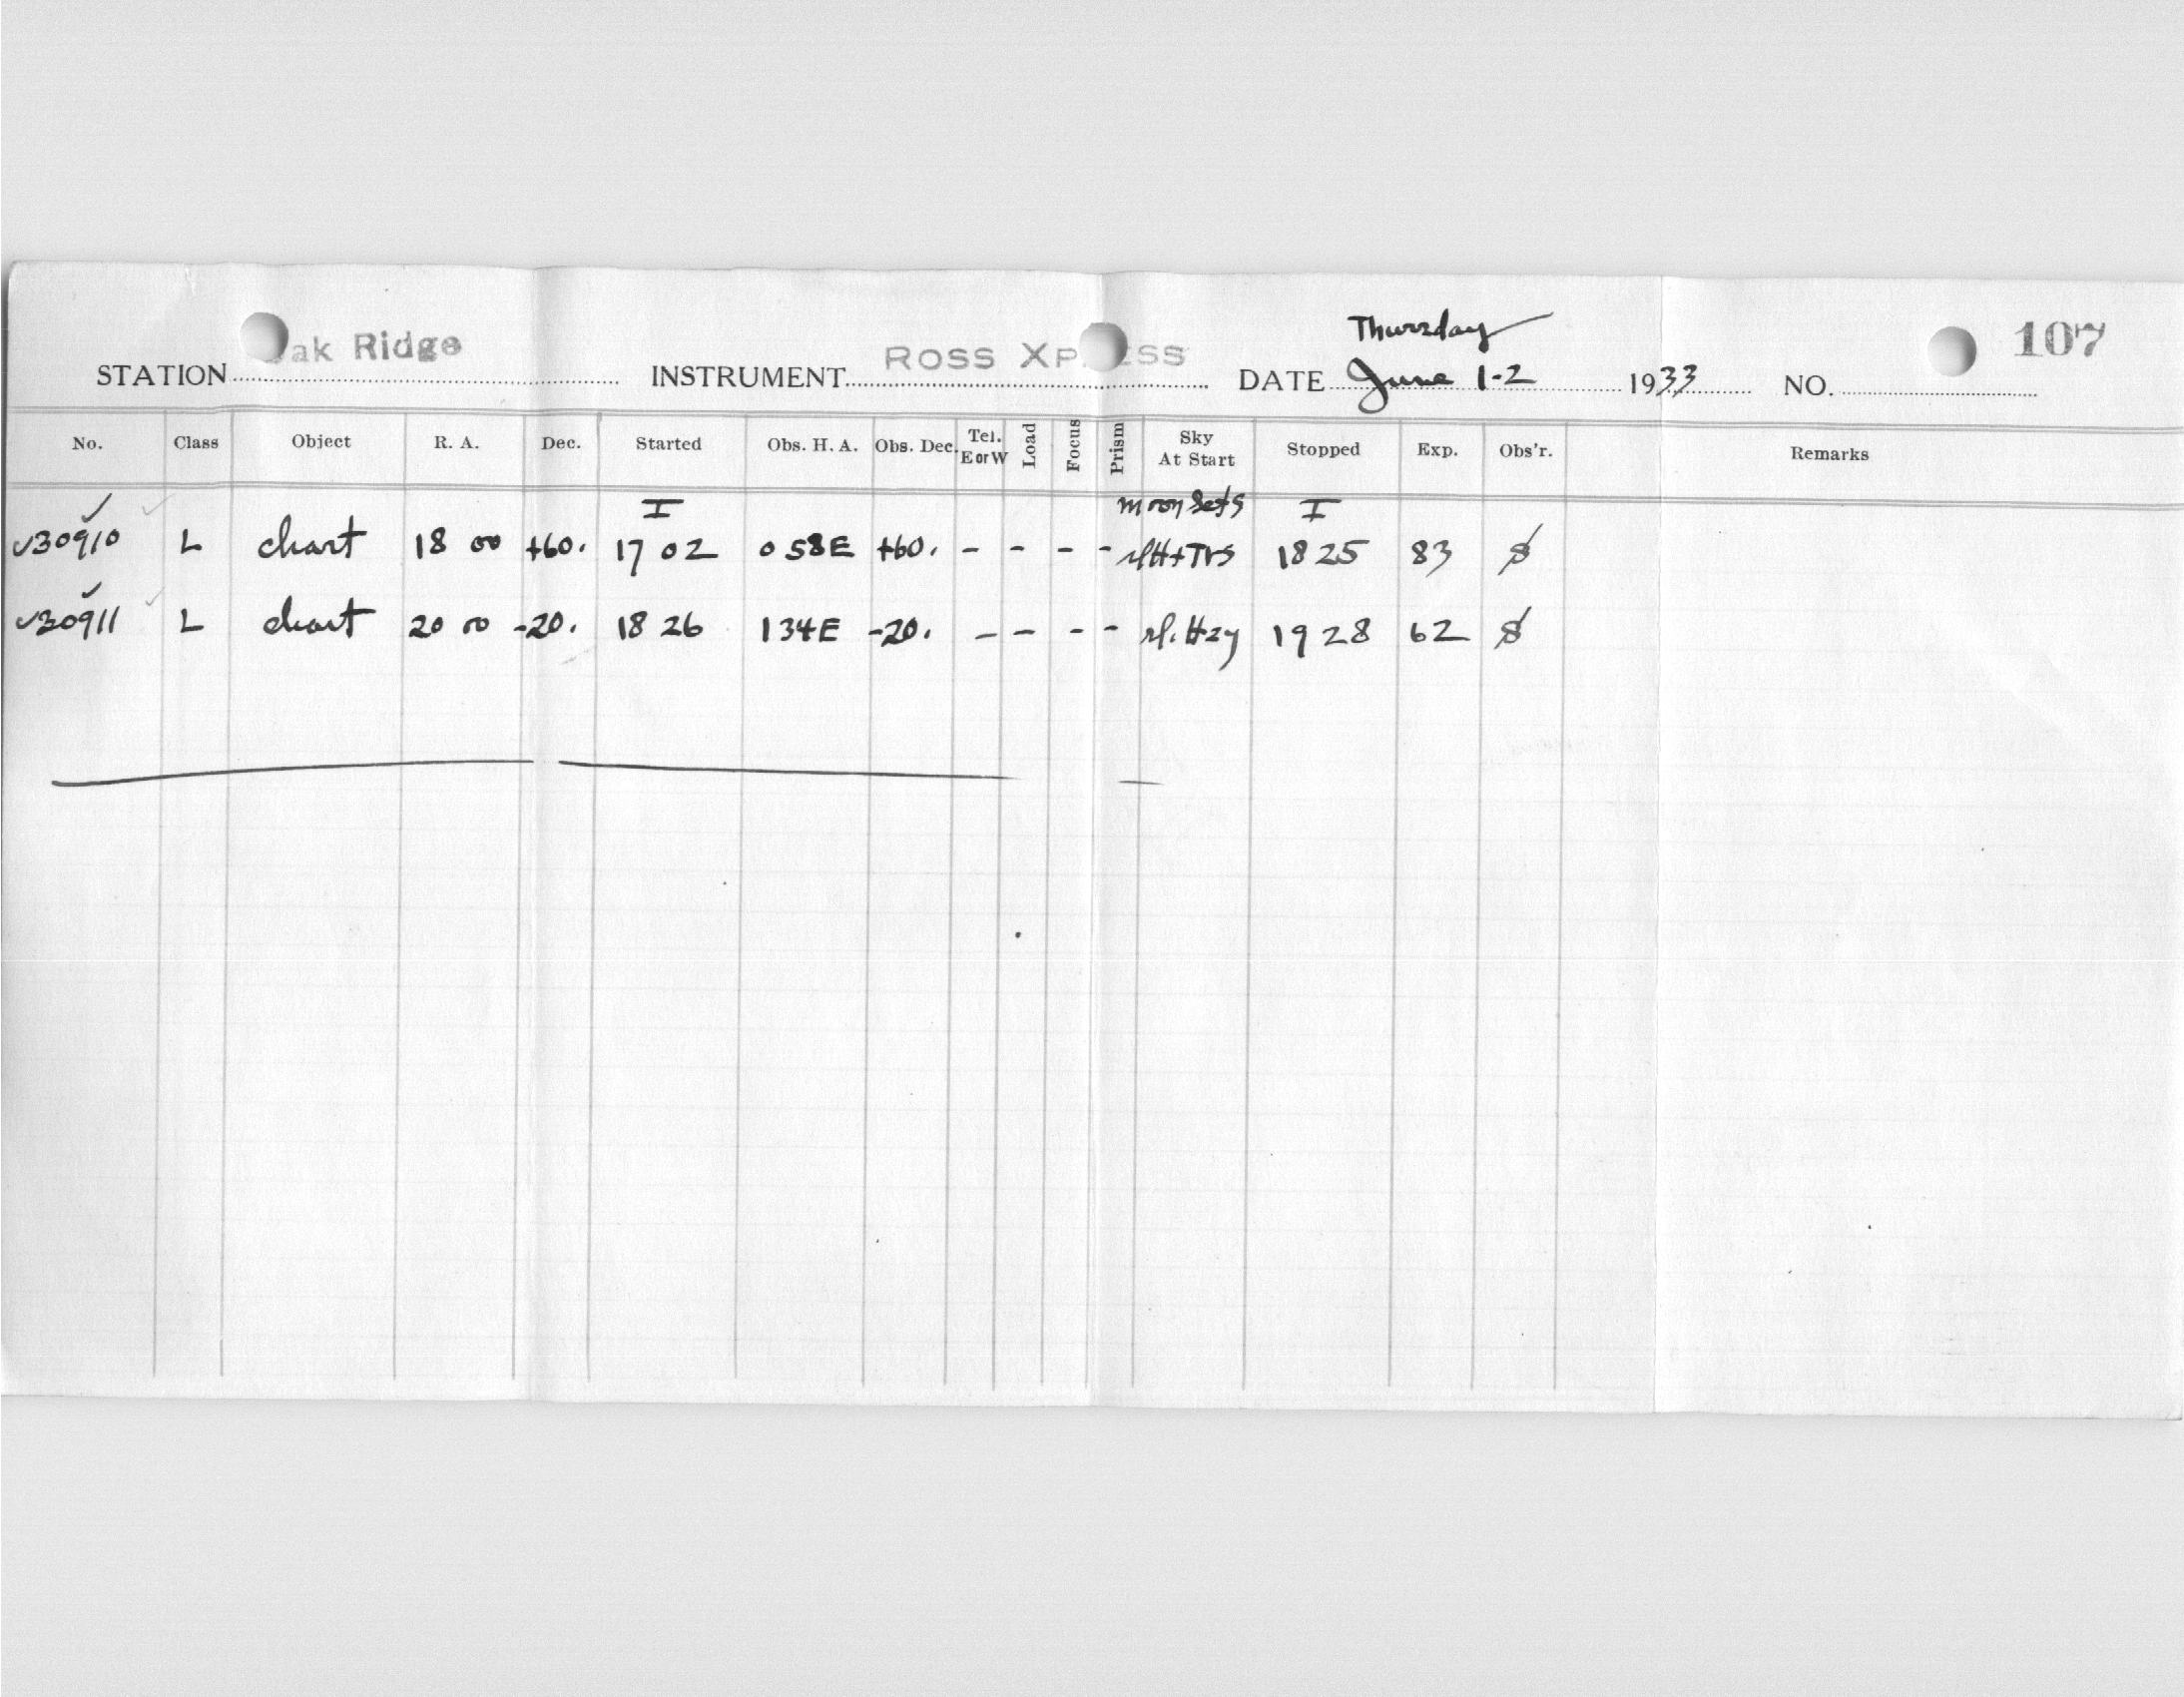 Thursday
STATION ak Ridge INSTRUMENT ROSS XP ESS DATE June 1-2 1933 NO. 107
No. Class Object R. A. Dec. Started Obs. H. A. Obs. Dec. Tel. E or W Load Focus Prism Sky At Start Stopped Exp. Obs'r. Remarks
I moon sets I
30910 L chart 18 00 +60. 17 02 0 58E +60. - - - - 18 25 83
30911 L chart 20 00 -20. 18 26 1 34E -20. - - - - sl. Hzy 19 28 62